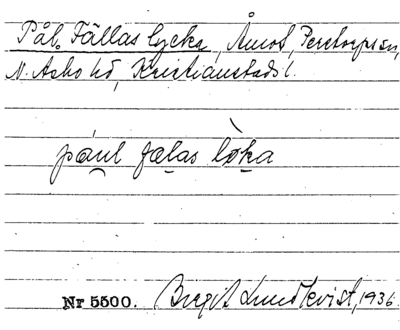 Pål Fällas lycka, Åmot, Perstorps sn,
N. Åsbo hd, Kristianstads l.
pául fælas lỳka
Nr 5500. Birgit Lundkvist, 1936